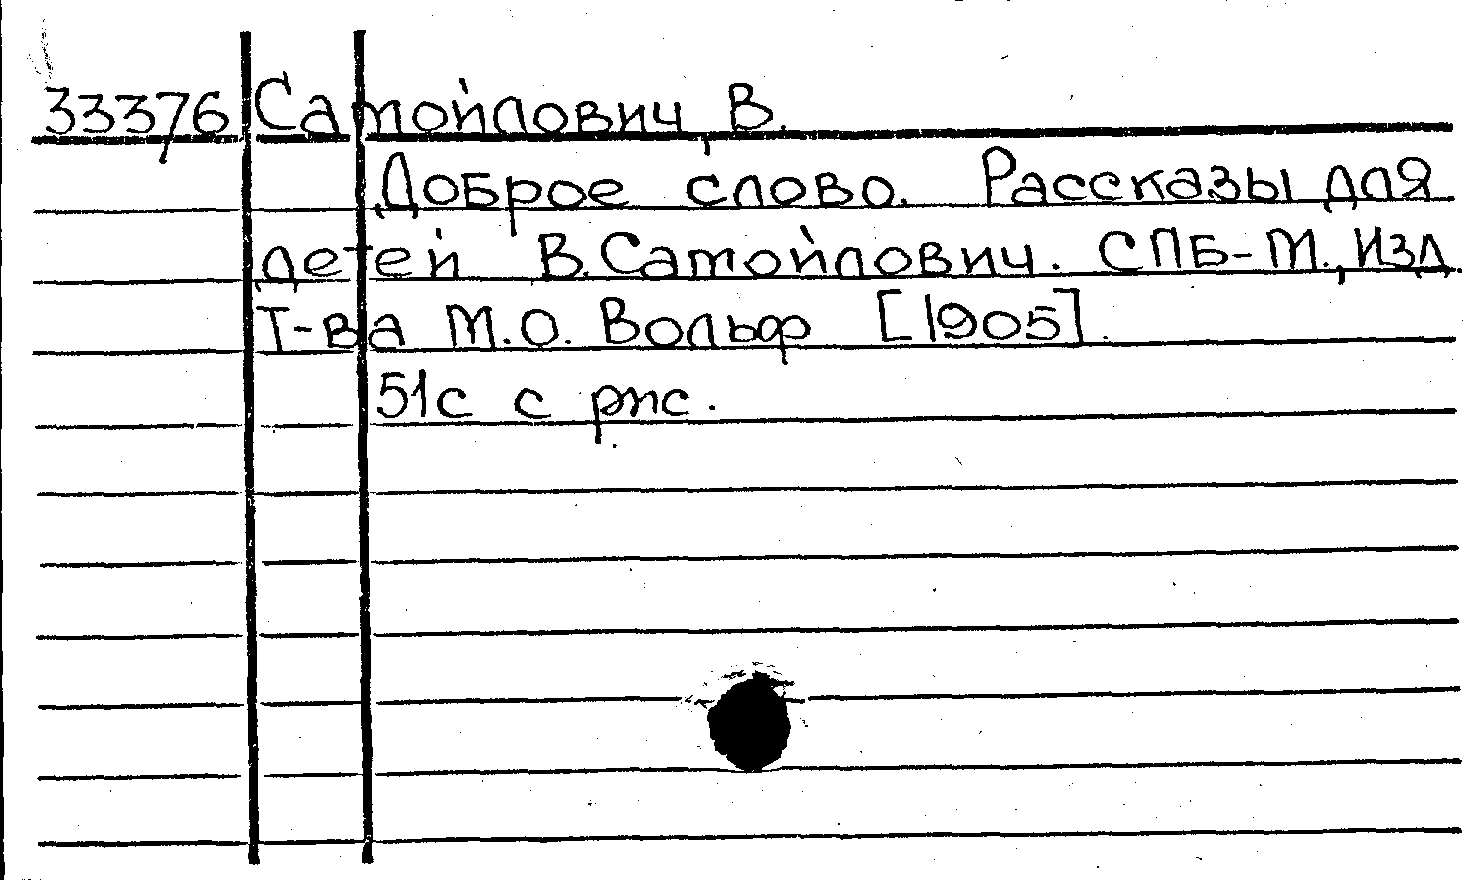 33376 Самойлович В.
Доброе слово. Рассказы для
детей В.Самойлович. СПБ-М., Изд.
Т-ва М.О. Вольф [1905].
51с с рис.